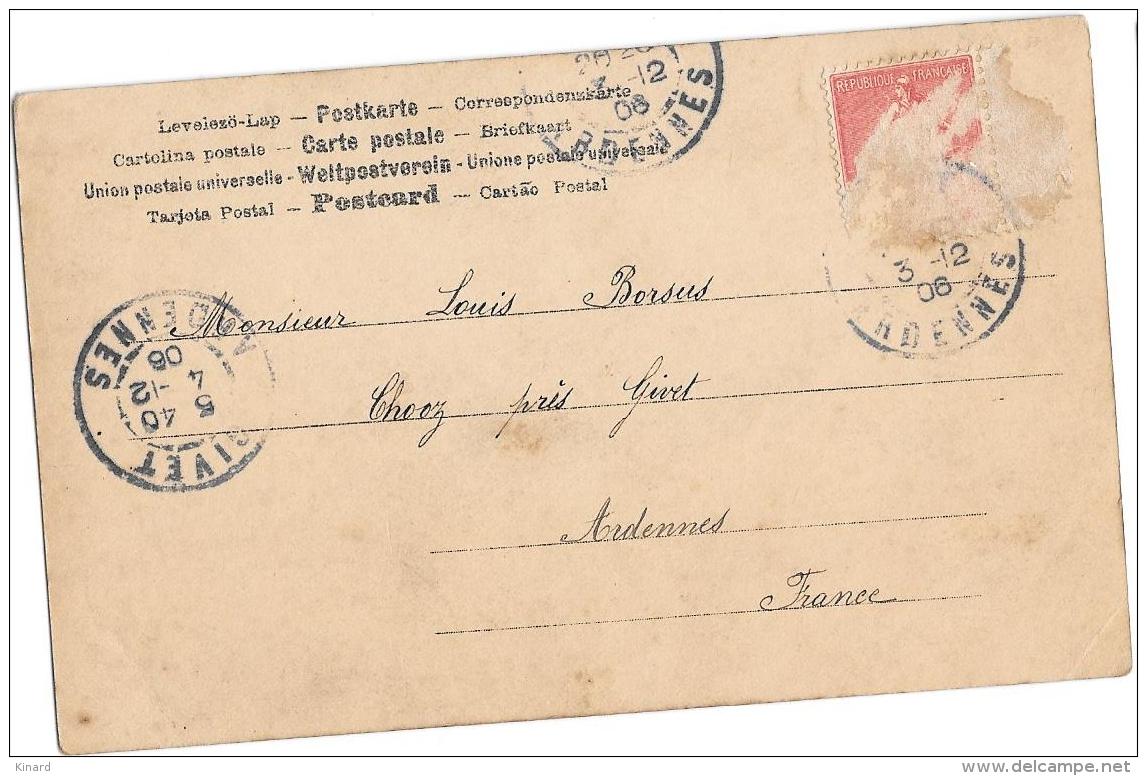 Levelező-Lap — Postkarte — Correspondenzkarte
Cartolina postale — Carte postale — Briefkaart
Union postale universelle - Weltpostverein - Unione postale universale
Tarjeta Postal — Postcard — Cartão Postal
-12
06
ARDENNES
REPUBLIQUE FRANÇAISE
3 -12
06
ARDENNES
Monsieur Louis Borsus
Chooz près Givet
Ardennes
France
GIVET
5 40
4 -12
06
ARDENNES
Kinard
delcampe.net